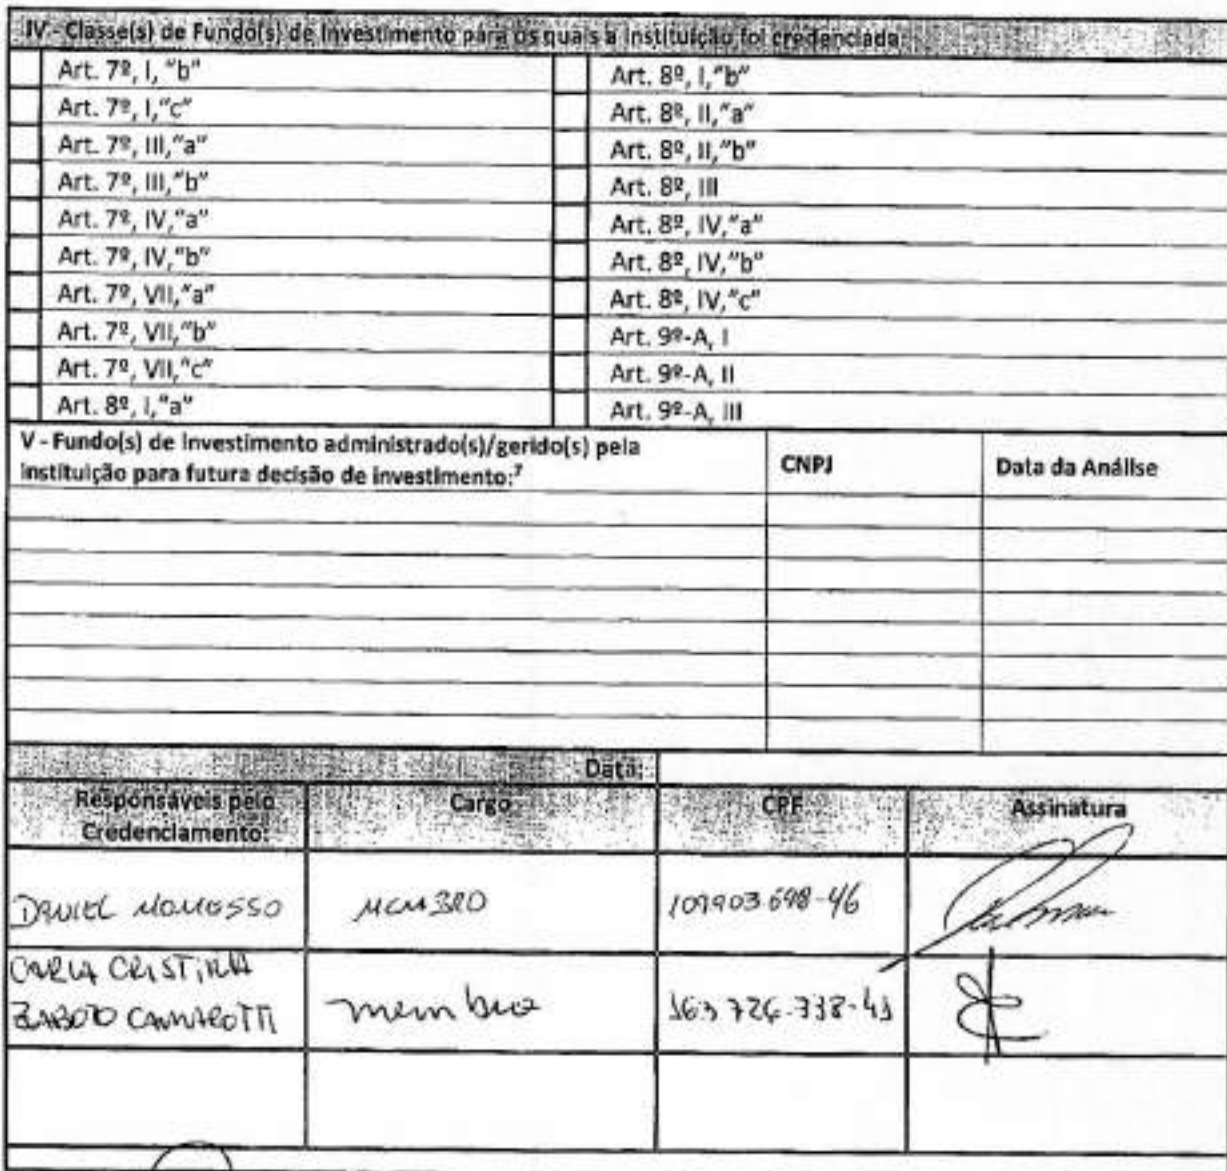 IV - Classe(s) de Fundo(s) de Investimento para os quais a Instituição foi credenciada:
Art. 7º, I, "b"
Art. 8º, I,"b"
Art. 7º, I,"c"
Art. 8º, II,"a"
Art. 7º, III,"a"
Art. 8º, II,"b"
Art. 7º, III,"b"
Art. 8º, III
Art. 7º, IV,"a"
Art. 8º, IV,"a"
Art. 7º, IV,"b"
Art. 8º, IV,"b"
Art. 7º, VII,"a"
Art. 8º, IV,"c"
Art. 7º, VII,"b"
Art. 9º-A, I
Art. 7º, VII,"c"
Art. 9º-A, II
Art. 8º, I,"a"
Art. 9º-A, III
V - Fundo(s) de Investimento administrado(s)/gerido(s) pela
instituição para futura decisão de investimento:⁷
CNPJ
Data da Análise
Data:
Responsáveis pelo
Credenciamento:
Cargo
CPF
Assinatura
DANIEL
MEMBRO
CARLA CRISTINA
membro